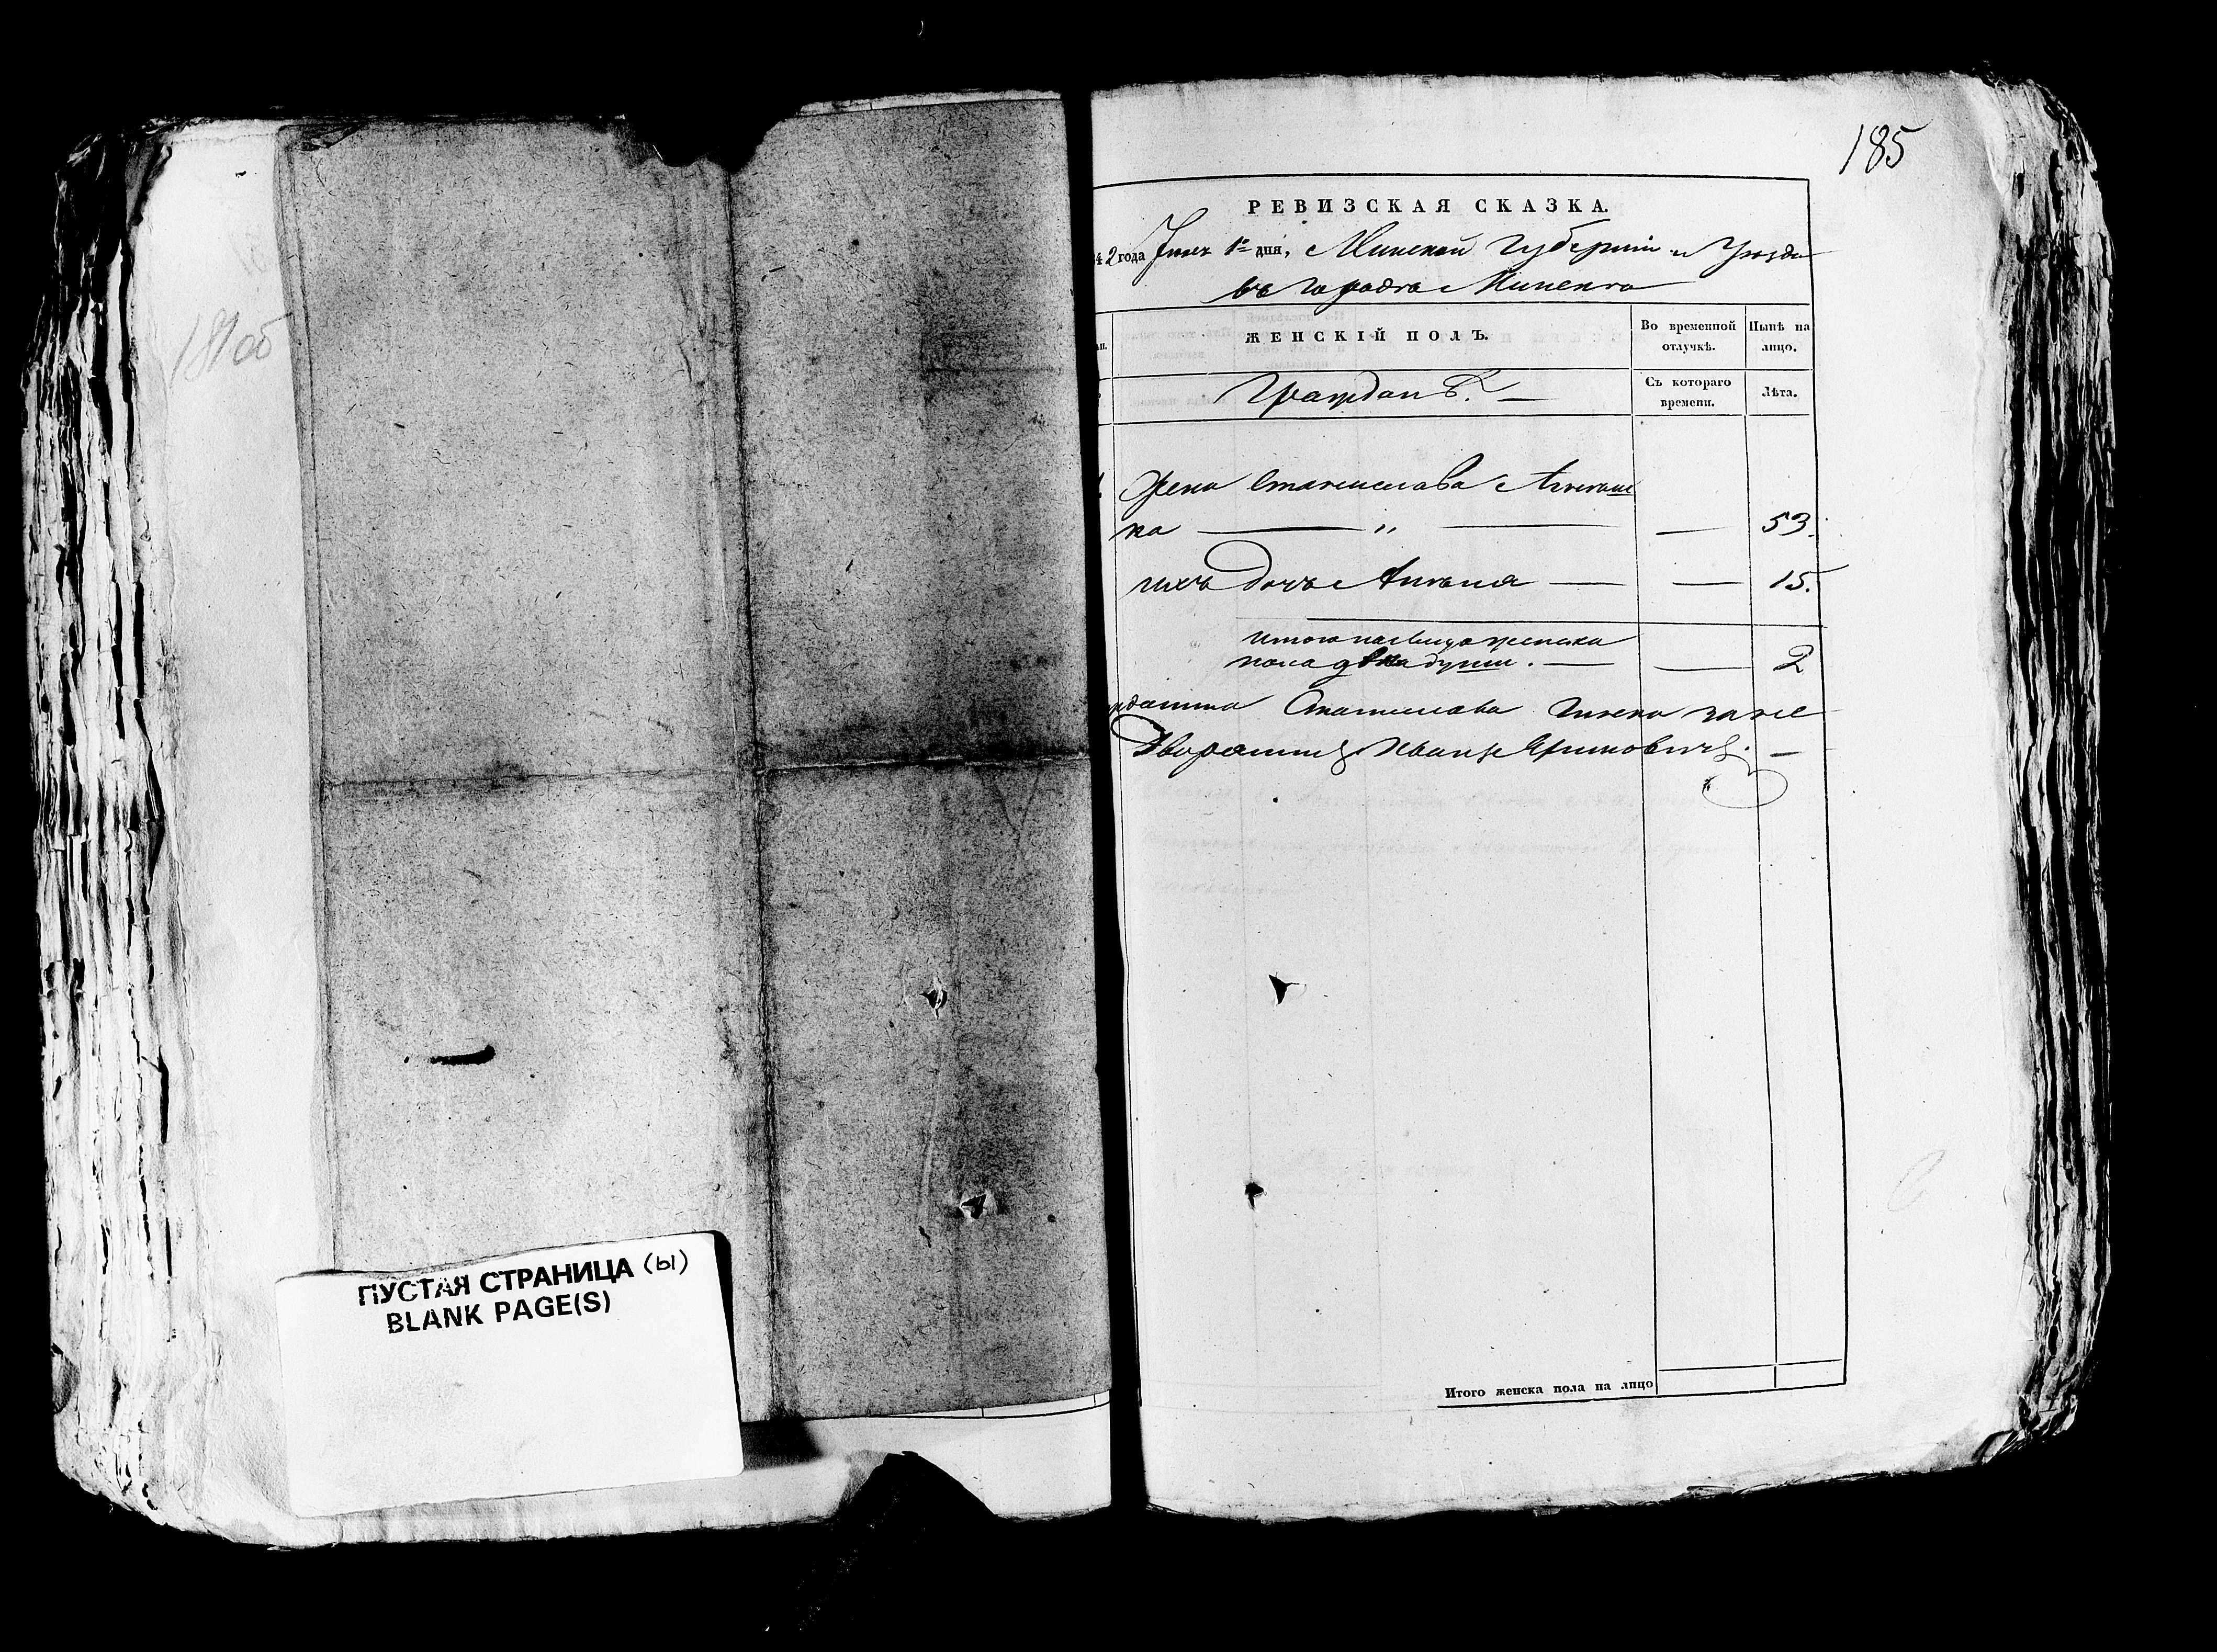 181 об
ПУСТАЯ СТРАНИЦА (ы)
BLANK PAGE(S)
185
РЕВИЗСКАЯ СКАЗКА.
42 года Іюля 1го дня, Минской Губерніи и Уѣзда
въ городѣ Минскѣ
ЖЕНСКІЙ ПОЛЪ.
Во временной отлучкѣ.
Нынѣ на лицо.
Гражданъ.
Съ котораго времени.
Лѣта.
Жена Станислава
ка — „ — — 53.
ихъ дочь Антонія — — 15.
Итого налицо женска
пола две души. — — 2
Станислава
Дворянинъ Иванъ —
Итого женска пола на лицо